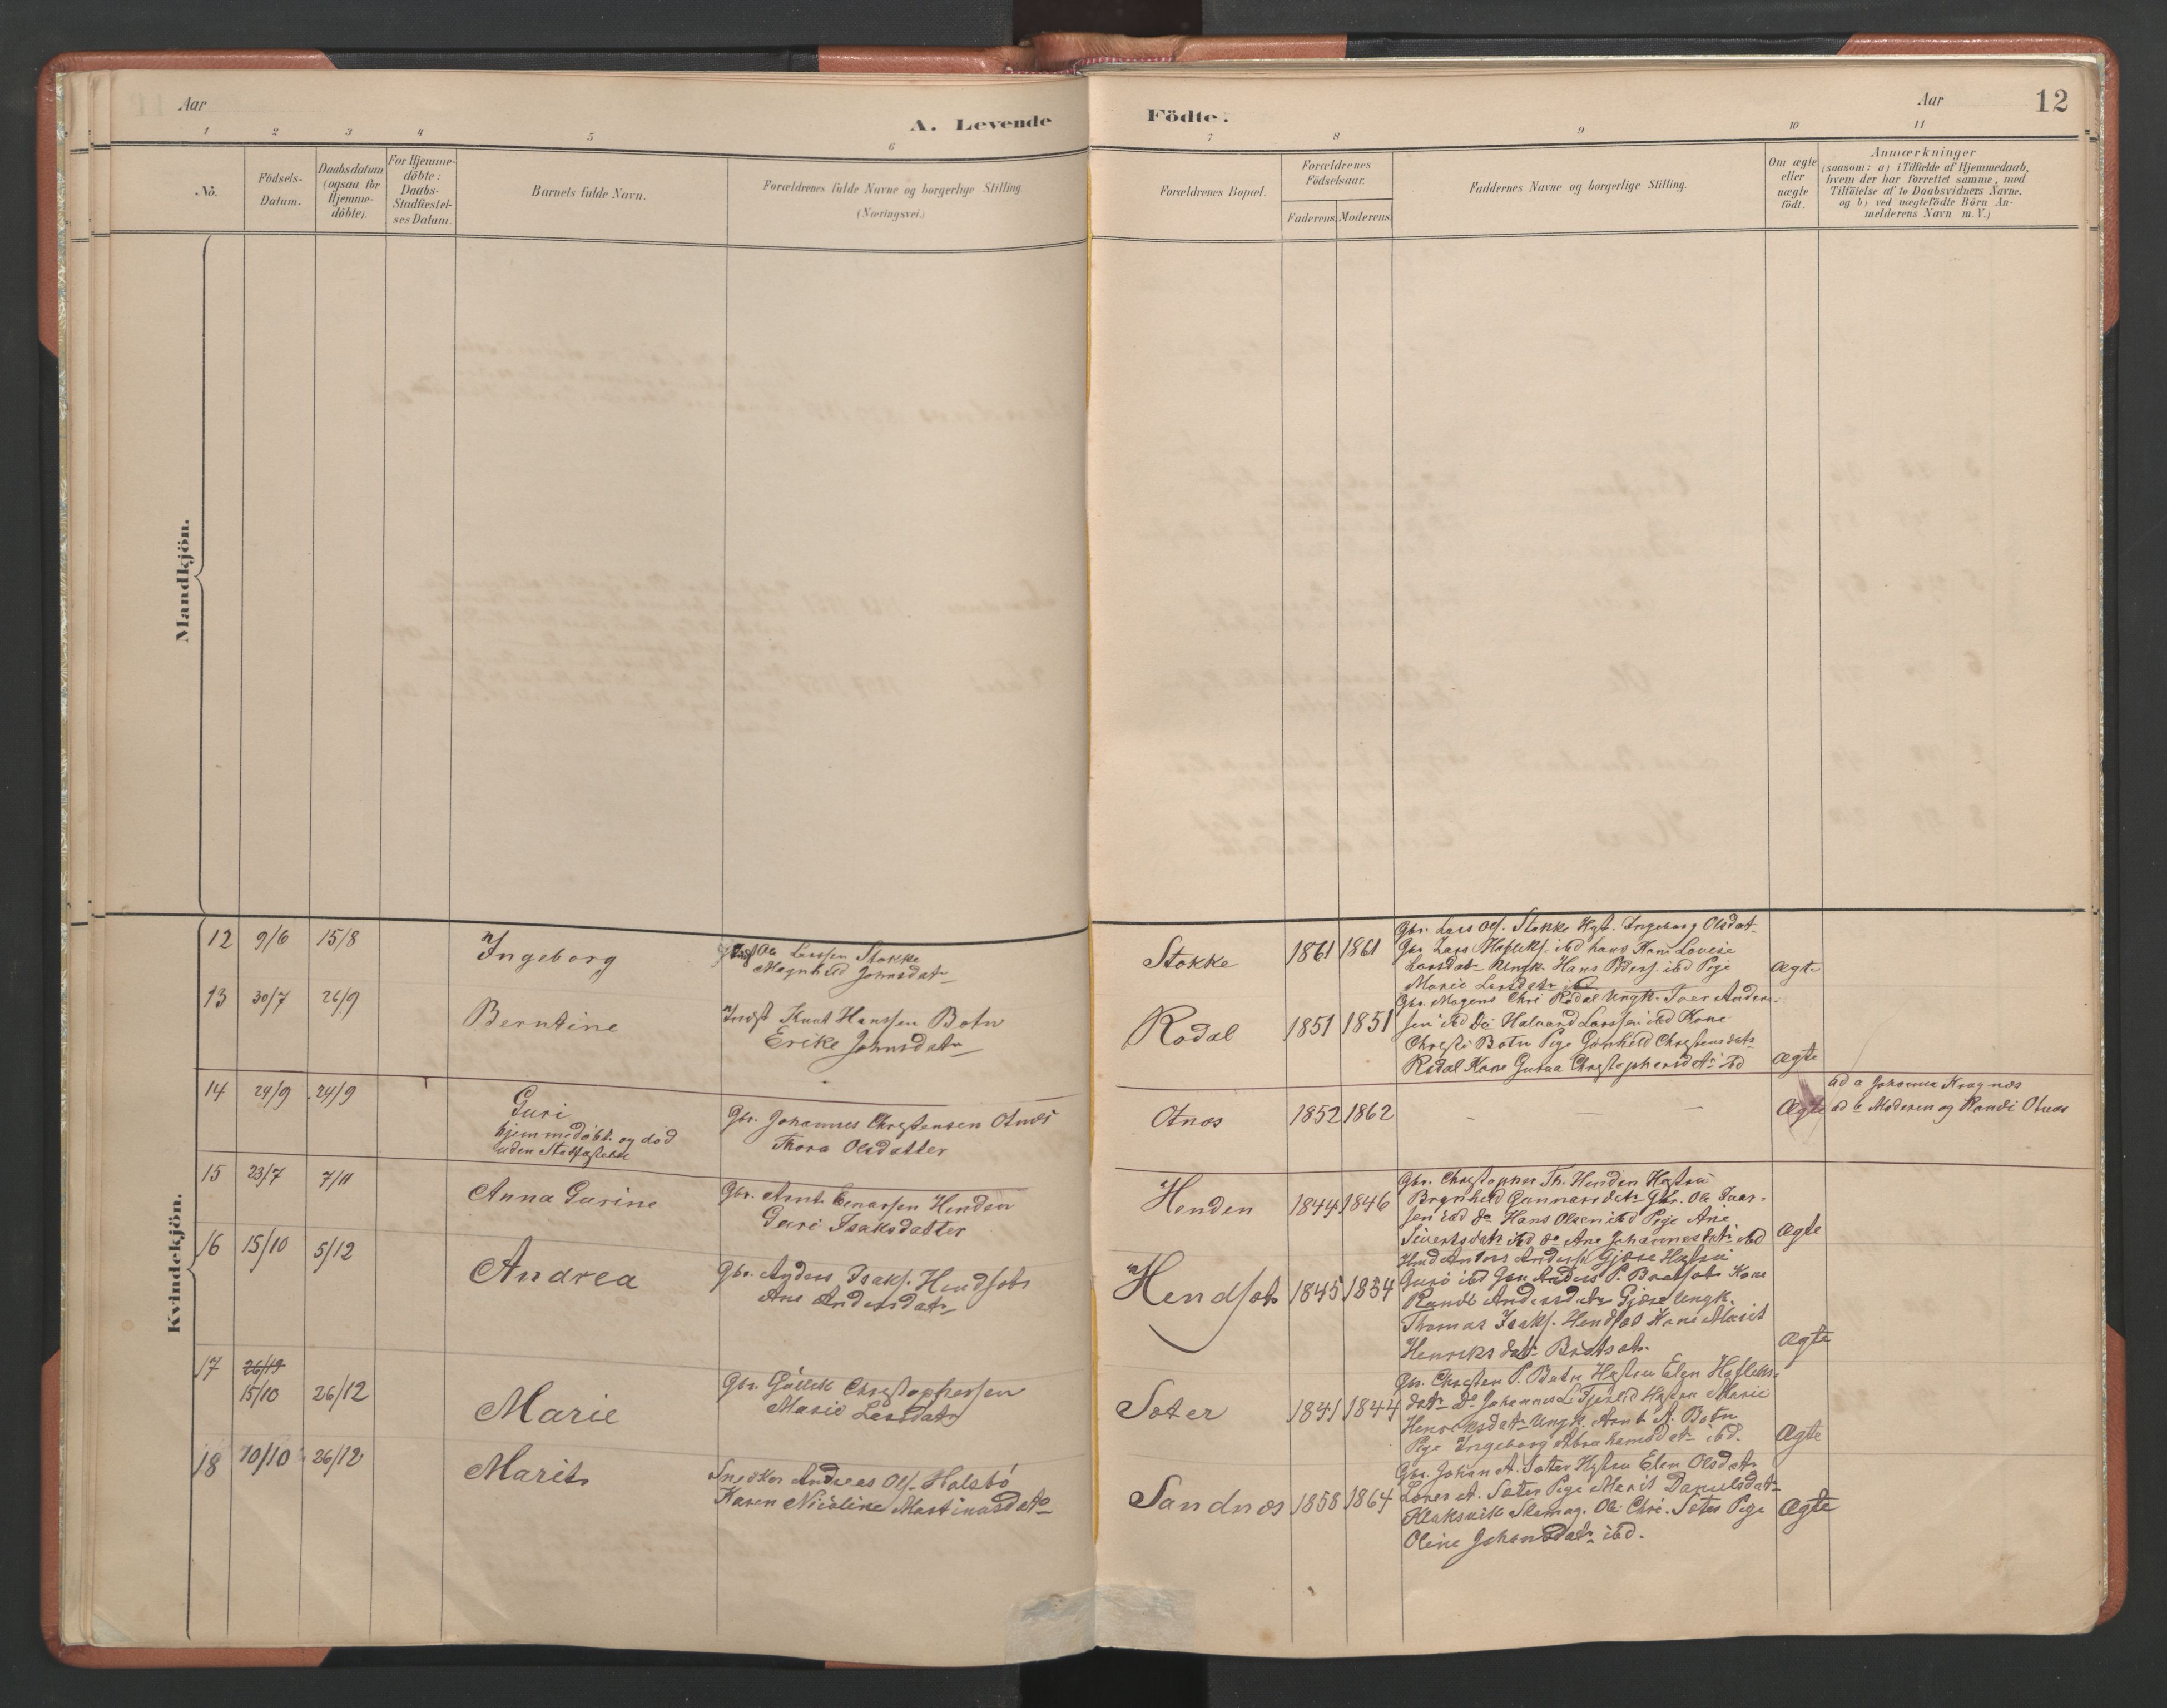 Aar
A. Levende Födte.
Aar
12
1 2 3 4 5 6 7 8 9 10 11
No.
Födsels-
Datum.
Daabsdatum
(ogsaa for
Hjemme-
döbte).
For Hjemme-
döbte:
Daabs-
Stadfæstel-
ses Datum.
Barnets fulde Navn.
Forældrenes fulde Navne og borgerlige Stilling.
(Næringsvei.)
Forældrenes Bopæl.
Forældrenes
Födselsaar.
Faderens. Moderens.
Faddernes Navne og borgerlige Stilling.
Om ægte
eller
uægte
födt.
Anmærkninger
(saasom: a) i Tilfælde af Hjemmedaab,
hvem der har forrettet samme, med
Tilföielse af to Daabsvidners Navne.
og b) ved uægtefödte Börn An-
melderens Navn m. V.)
Mandkjön.
Kvindekjön.
12 9/6 15/8
Ingeborg
Ole Larssen Stokke
Magnhild Johnsdatr
Stokke 1861 1861
Gbr. Lars Ols. Stokke Hgst. Ingeborg Olsdat-
Gbr Lars ibd hans Kone Lovise
Larsdatr Ungk. Hans Peders. ibd Pige
Marie Larsdatr ibd
Ægte
13 30/7 26/9
Berntine
Indst Knut Hanssen Botn
Erike Johnsdatr
Rodal 1851 1851
Gbr. Mogens Chri Rodal Ungk. Iver Anders-
sen ibd Do Halvard Larssen ibd Kone
Christi Botn Pige Gunhild Christensdatr
Rodal Kone Guraa Christophersdatr ibd
Ægte
14 24/9 24/9
Guri
hjemmedöbt og död
uden Stadfæstelse
Gbr. Johannes Christensen Otnes
Thora Olsdatter
Otnes 1852 1862 — — —
Ægte
ad a Johanna Kragnæs
ad b Moderen og Randi Otnæs
15 23/7 7/11
Anna Gurine
Gbr. Arnt Einarssen Henden
Guri Isaksdatter
Henden 1844 1846
Gbr. Christopher Th. Henden Hustru
Brynhild Gunnarsdatr Gbr. Ole Ivar-
sen ibd do Hans Olsen ibd Pige Ane
Sivertsdatr ibd do Ane Johannesdatr ibd
Ægte
16 15/10 5/12
Andrea
Gbr. Anders Isaks. Hendset
Ane Andersdatr
Hendset 1845 1854
Anders Anders. Gjøse Hustru
Guro ibd Gbr Anders P. Botset Kone
Randi Andersdatr Gjøse Ungk.
Thomas Isaks. Hendset Kone Marit
Henriksdatr Botset.
Ægte
17 26/12
15/10 26/12
Marie
Gbr. Gullik Christophersen
Marie Larsdatr
Soter 1841 1844
Gbr. Christen P. Botn Hustru Elen
datr do Johannes L. ibd Hustru Marie
Henriksdatr Ungk. Arnt A. Botn
Pige Ingeborg Abrahamsdatr ibd.
Ægte
18 10/10 26/12
Marit
Snedker Andreas Ols. Halsbö
Karen Nicoline Martinusdatr
Sandnæs 1858 1864
Gbr. Johan A. Soter Hustru Elen Olsdatr
A. Soter Pige Marit Danielsdatr
Klaksvik Ole Chri. Soter Pige
Oline Johansdatr ibd.
Ægte